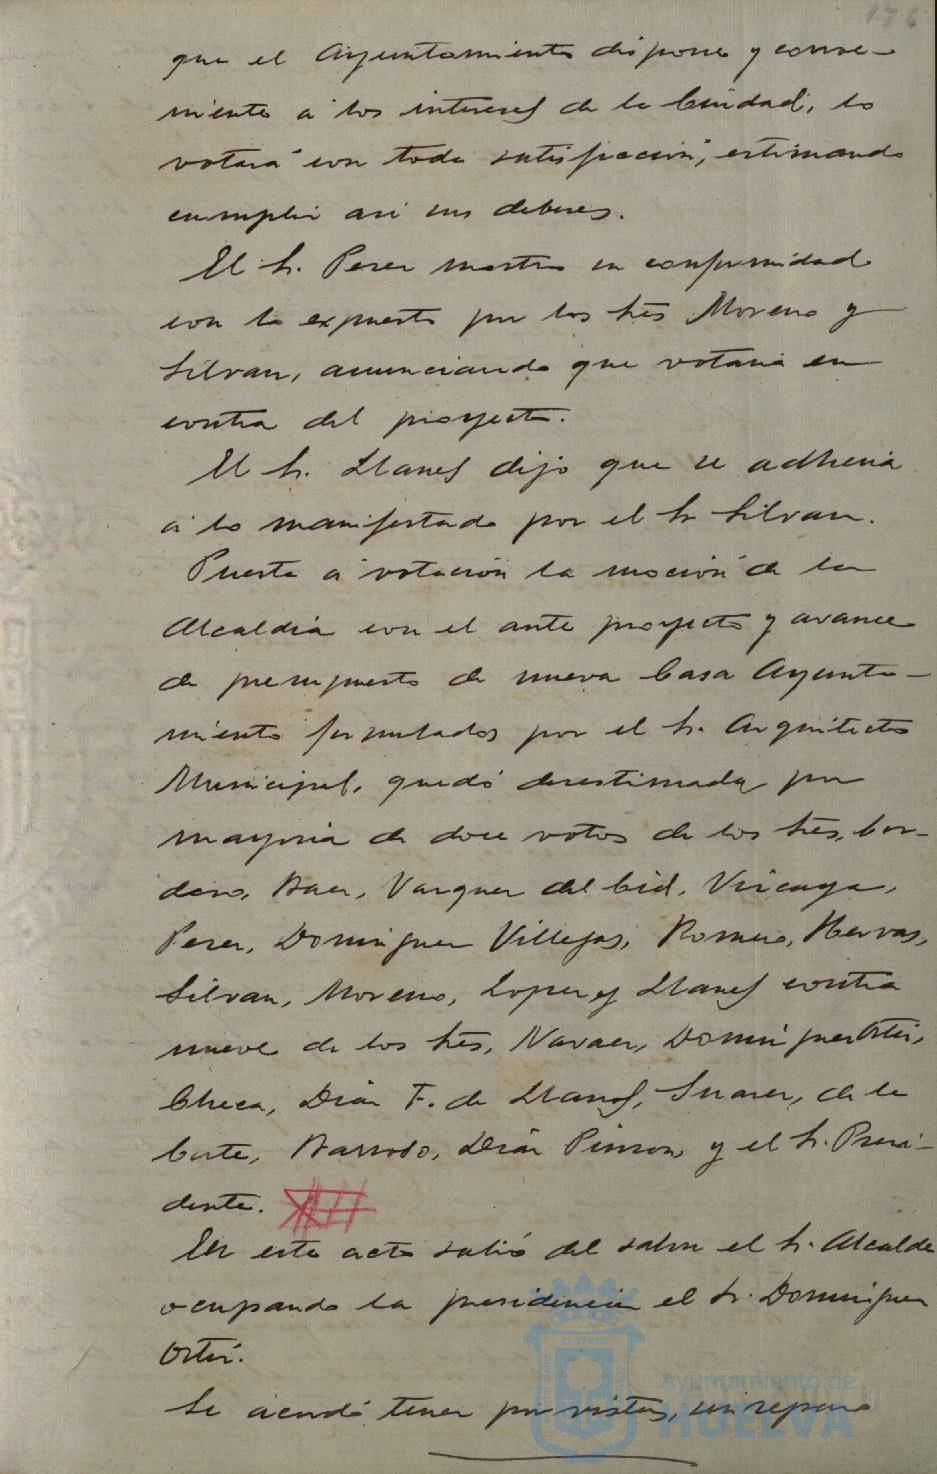 136
que el Ayuntamiento dispone y conve-
niente á los intereses de la Ciudad, lo
votará con toda satisfacción, estimando
cumplir asi sus deberes.
El Sr. Perez mostró su conformidad
con lo expuesto por los Sres Moreno y
Silvan, anunciando que votaria en
contra del proyecto.
El Sr. Llanes dijo que se adheria
á lo manifestado por el Sr Silvan.
Puesta á votación la moción de la
Alcaldia con el ante proyecto y avance
de presupuesto de nueva Casa Ayunta-
miento formulados por el Sr. Arquitecto
Municipal, quedó desestimada por
mayoria de doce votos de los Sres, Cor-
dero, Baez, Vazquez del Cid, Vizcaya,
Perez, Dominguez Villegas, Romero, Hervas,
Silvan, Moreno, Lopez y Llanes contra
nueve de los Sres, Narvaez, Dominguez Ortiz,
Checa, Diaz F. de Llanos, Suarez, de la
Corte, Barroso, Diaz Pinzon, y el Sr. Presi-
dente.
En este acto salió del salon el Sr. Alcalde
ocupando la presidencia el Sr. Dominguez
Ortiz.
Se acordó tener por vistas, sin reparo
Ayuntamiento de
HUELVA